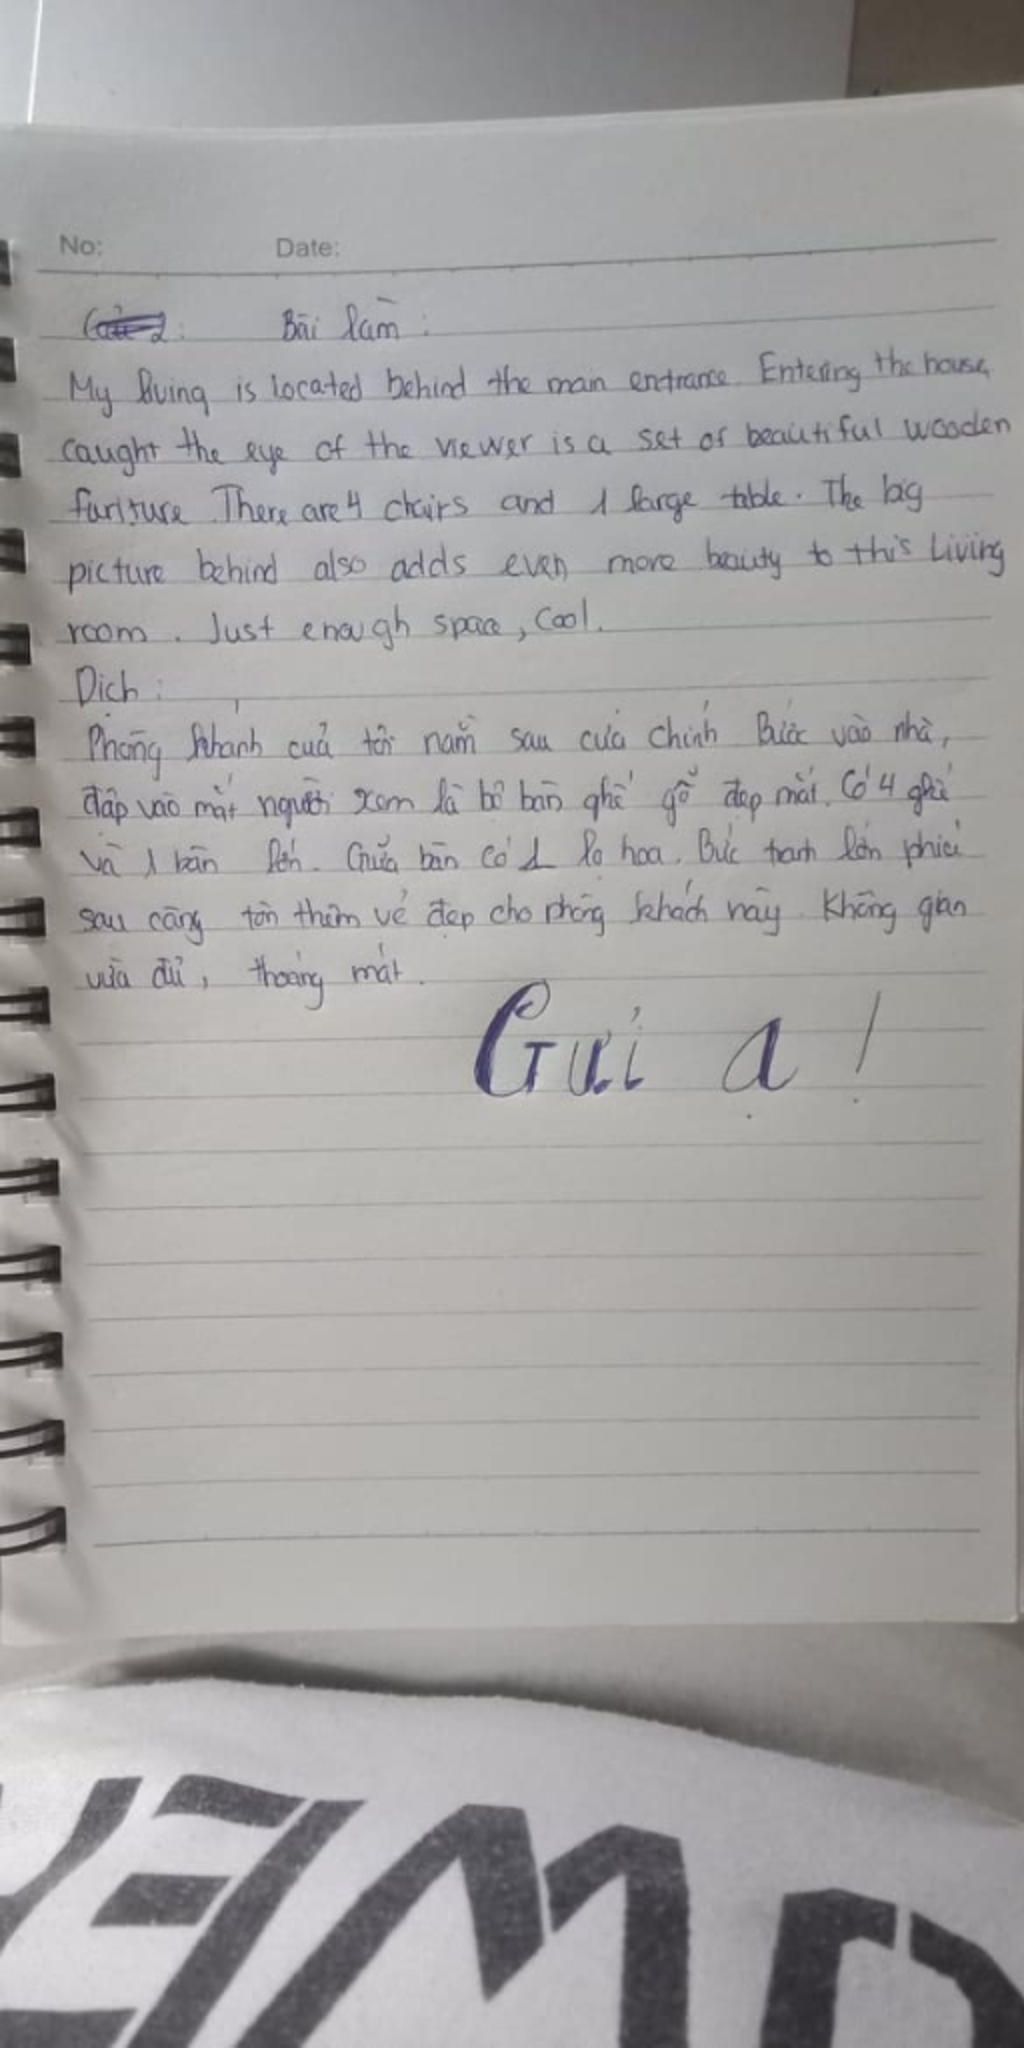 No: Date:
Bài làm:
My living is located behind the main entrance. Entering the house,
caught the eye of the viewer is a set of beautiful wooden
furniture. There are 4 chairs and 1 large table. The big
picture behind also adds even more beauty to this Living
room. Just enough space, Cool.
Dịch:
Phòng khánh của tôi nằm sau cửa chính Bước vào nhà,
đập vào mắt người xem là bộ bàn ghế gỗ đẹp mắt. Có 4 ghế
và 1 bàn lớn. Giữa bàn có 1 lọ hoa. Bức tranh lớn phía
sau càng tôn thêm vẻ đẹp cho phòng khách này. Không gian
vừa đủ, thoáng mát.
Gửi ạ!